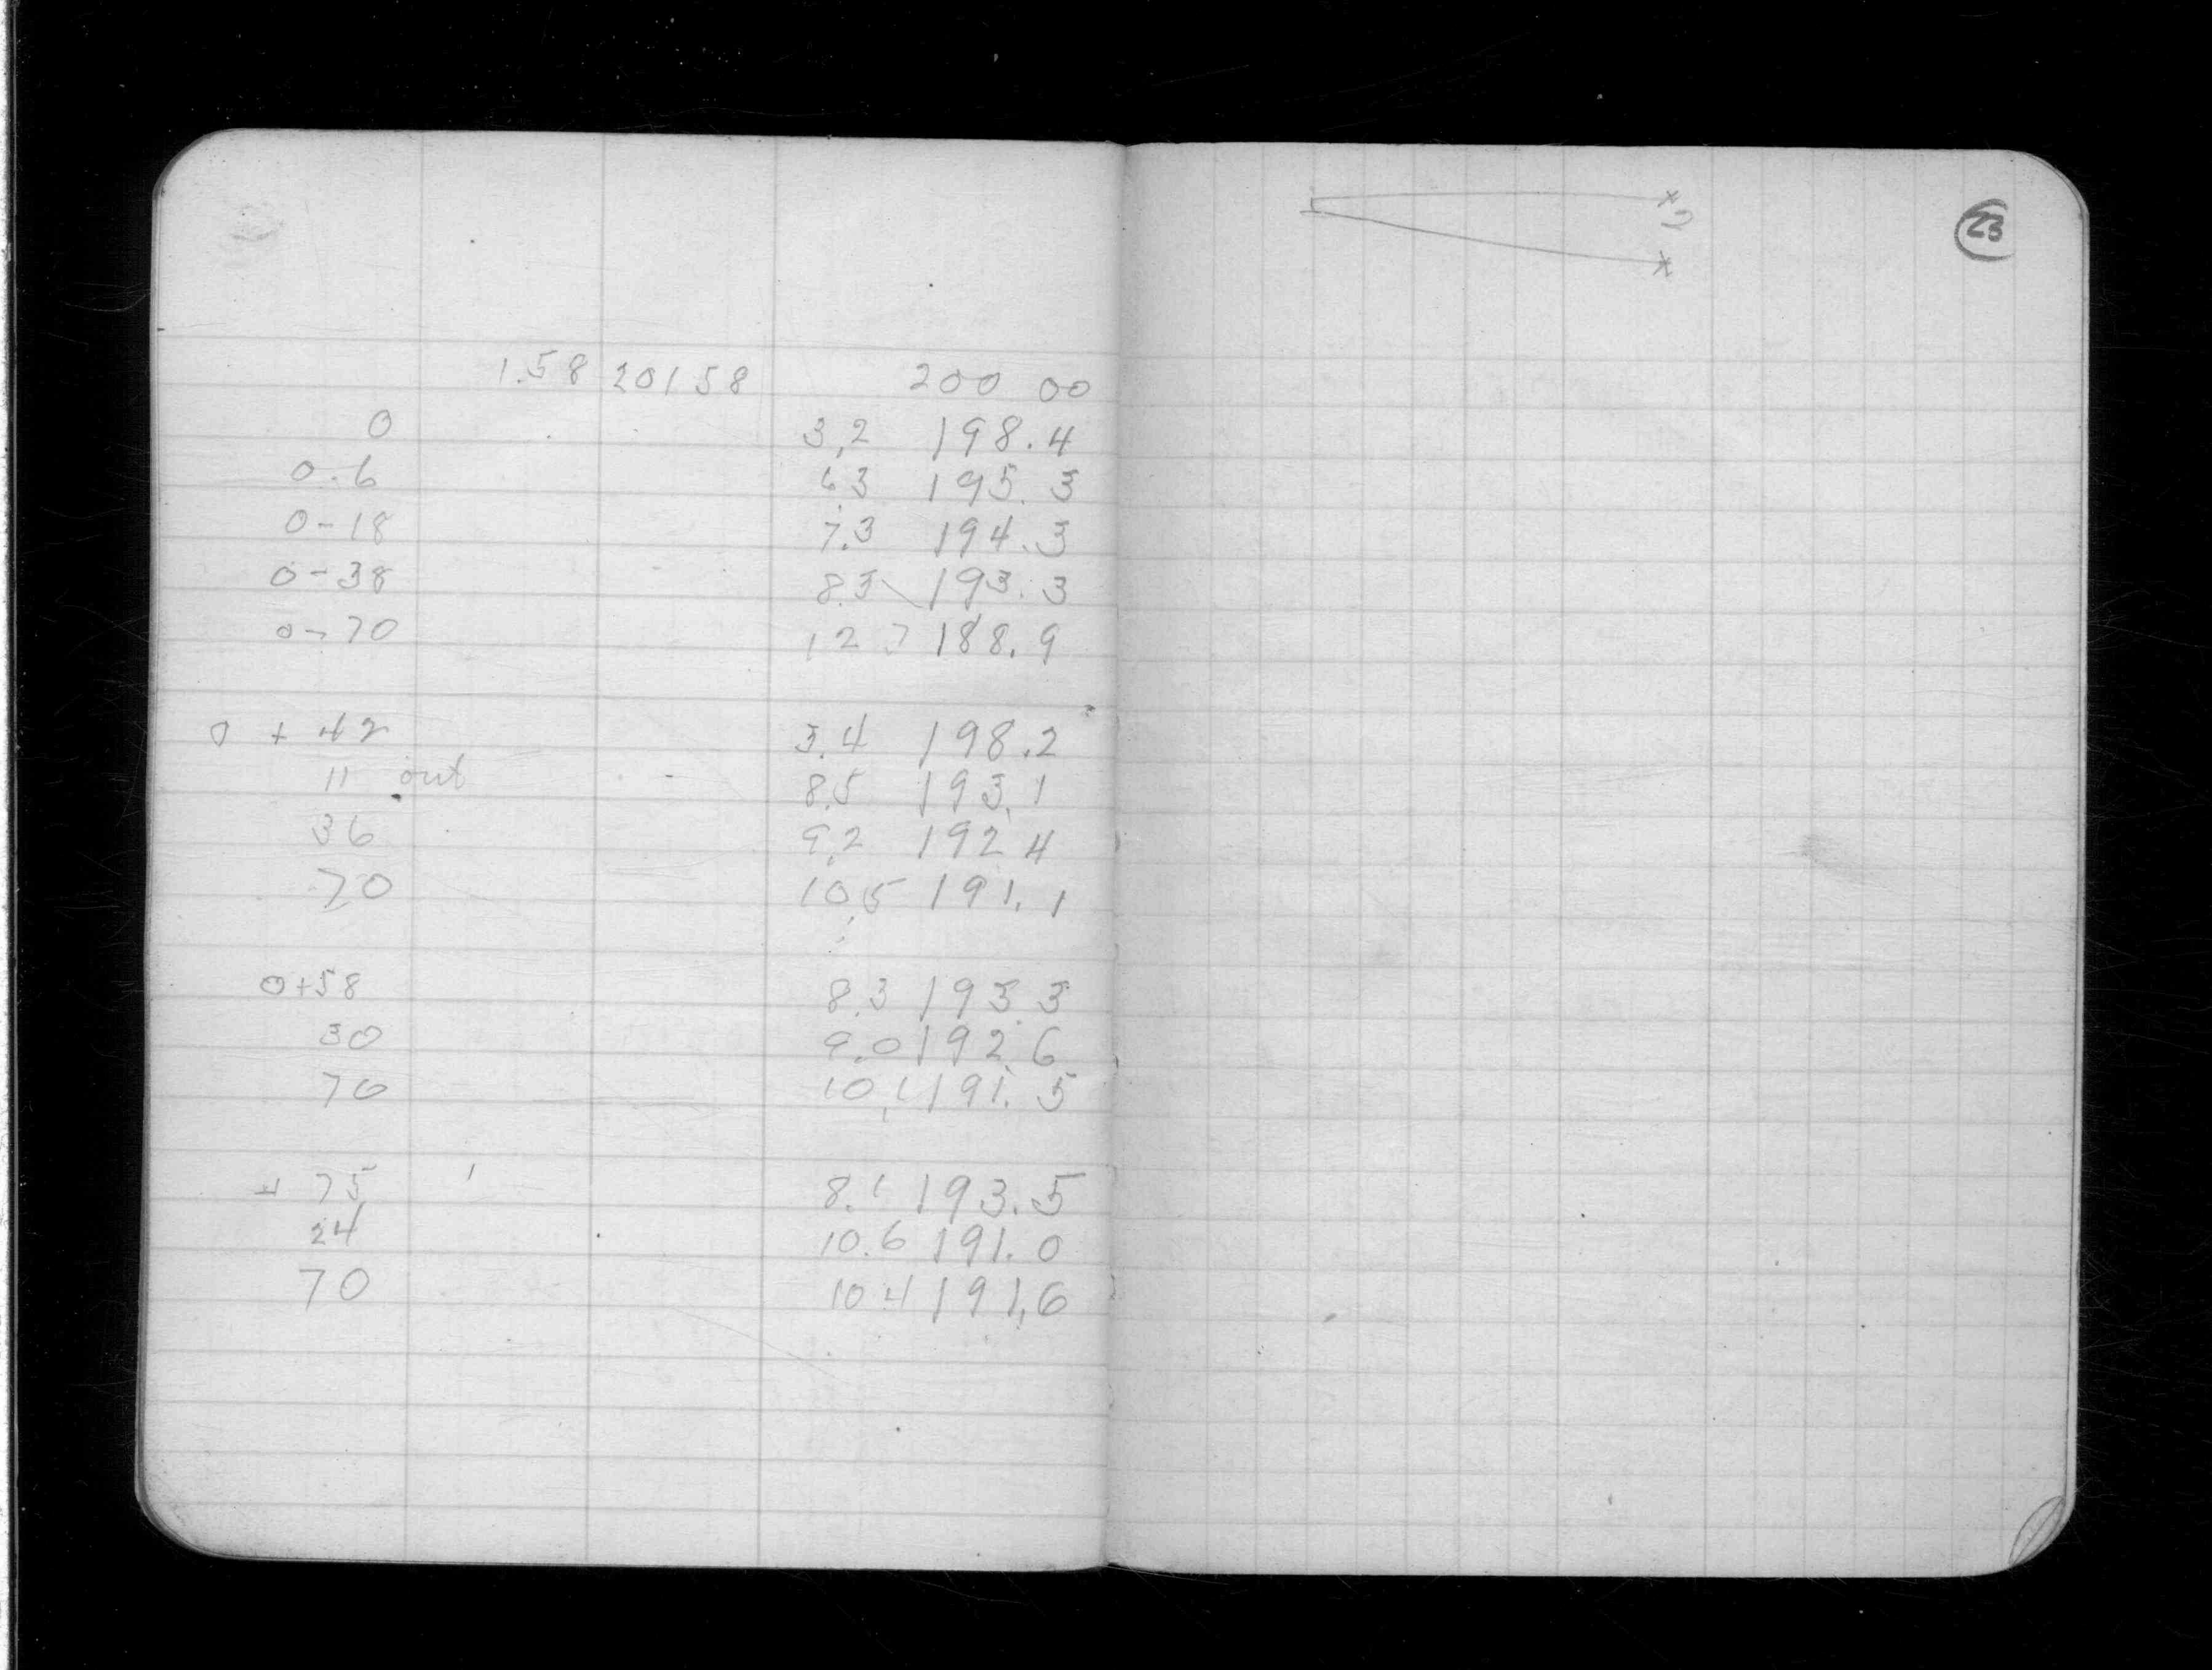 1.58 201 58 200 00
0 3.2 198.4
0-6 6.3 195.3
0-18 7.3 194.3
0-38 8.3 193.3
0-70 12 7 188.9
0 + 42 3.4 198.2
11 out 8.5 193.1
36 9.2 192 4
70 10.5 191.1
0+58 8.3 193 3
30 9.0 192.6
70 10.1 191.5
+ 75 8.1 193.5
24 10.6 191.0
70 10.4 191.6
23